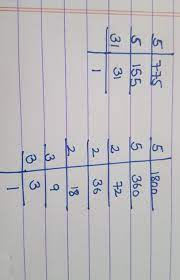 5 775
5 155
31 31
1
5 1800
5 360
2 72
2 36
2 18
3 9
3 3
1